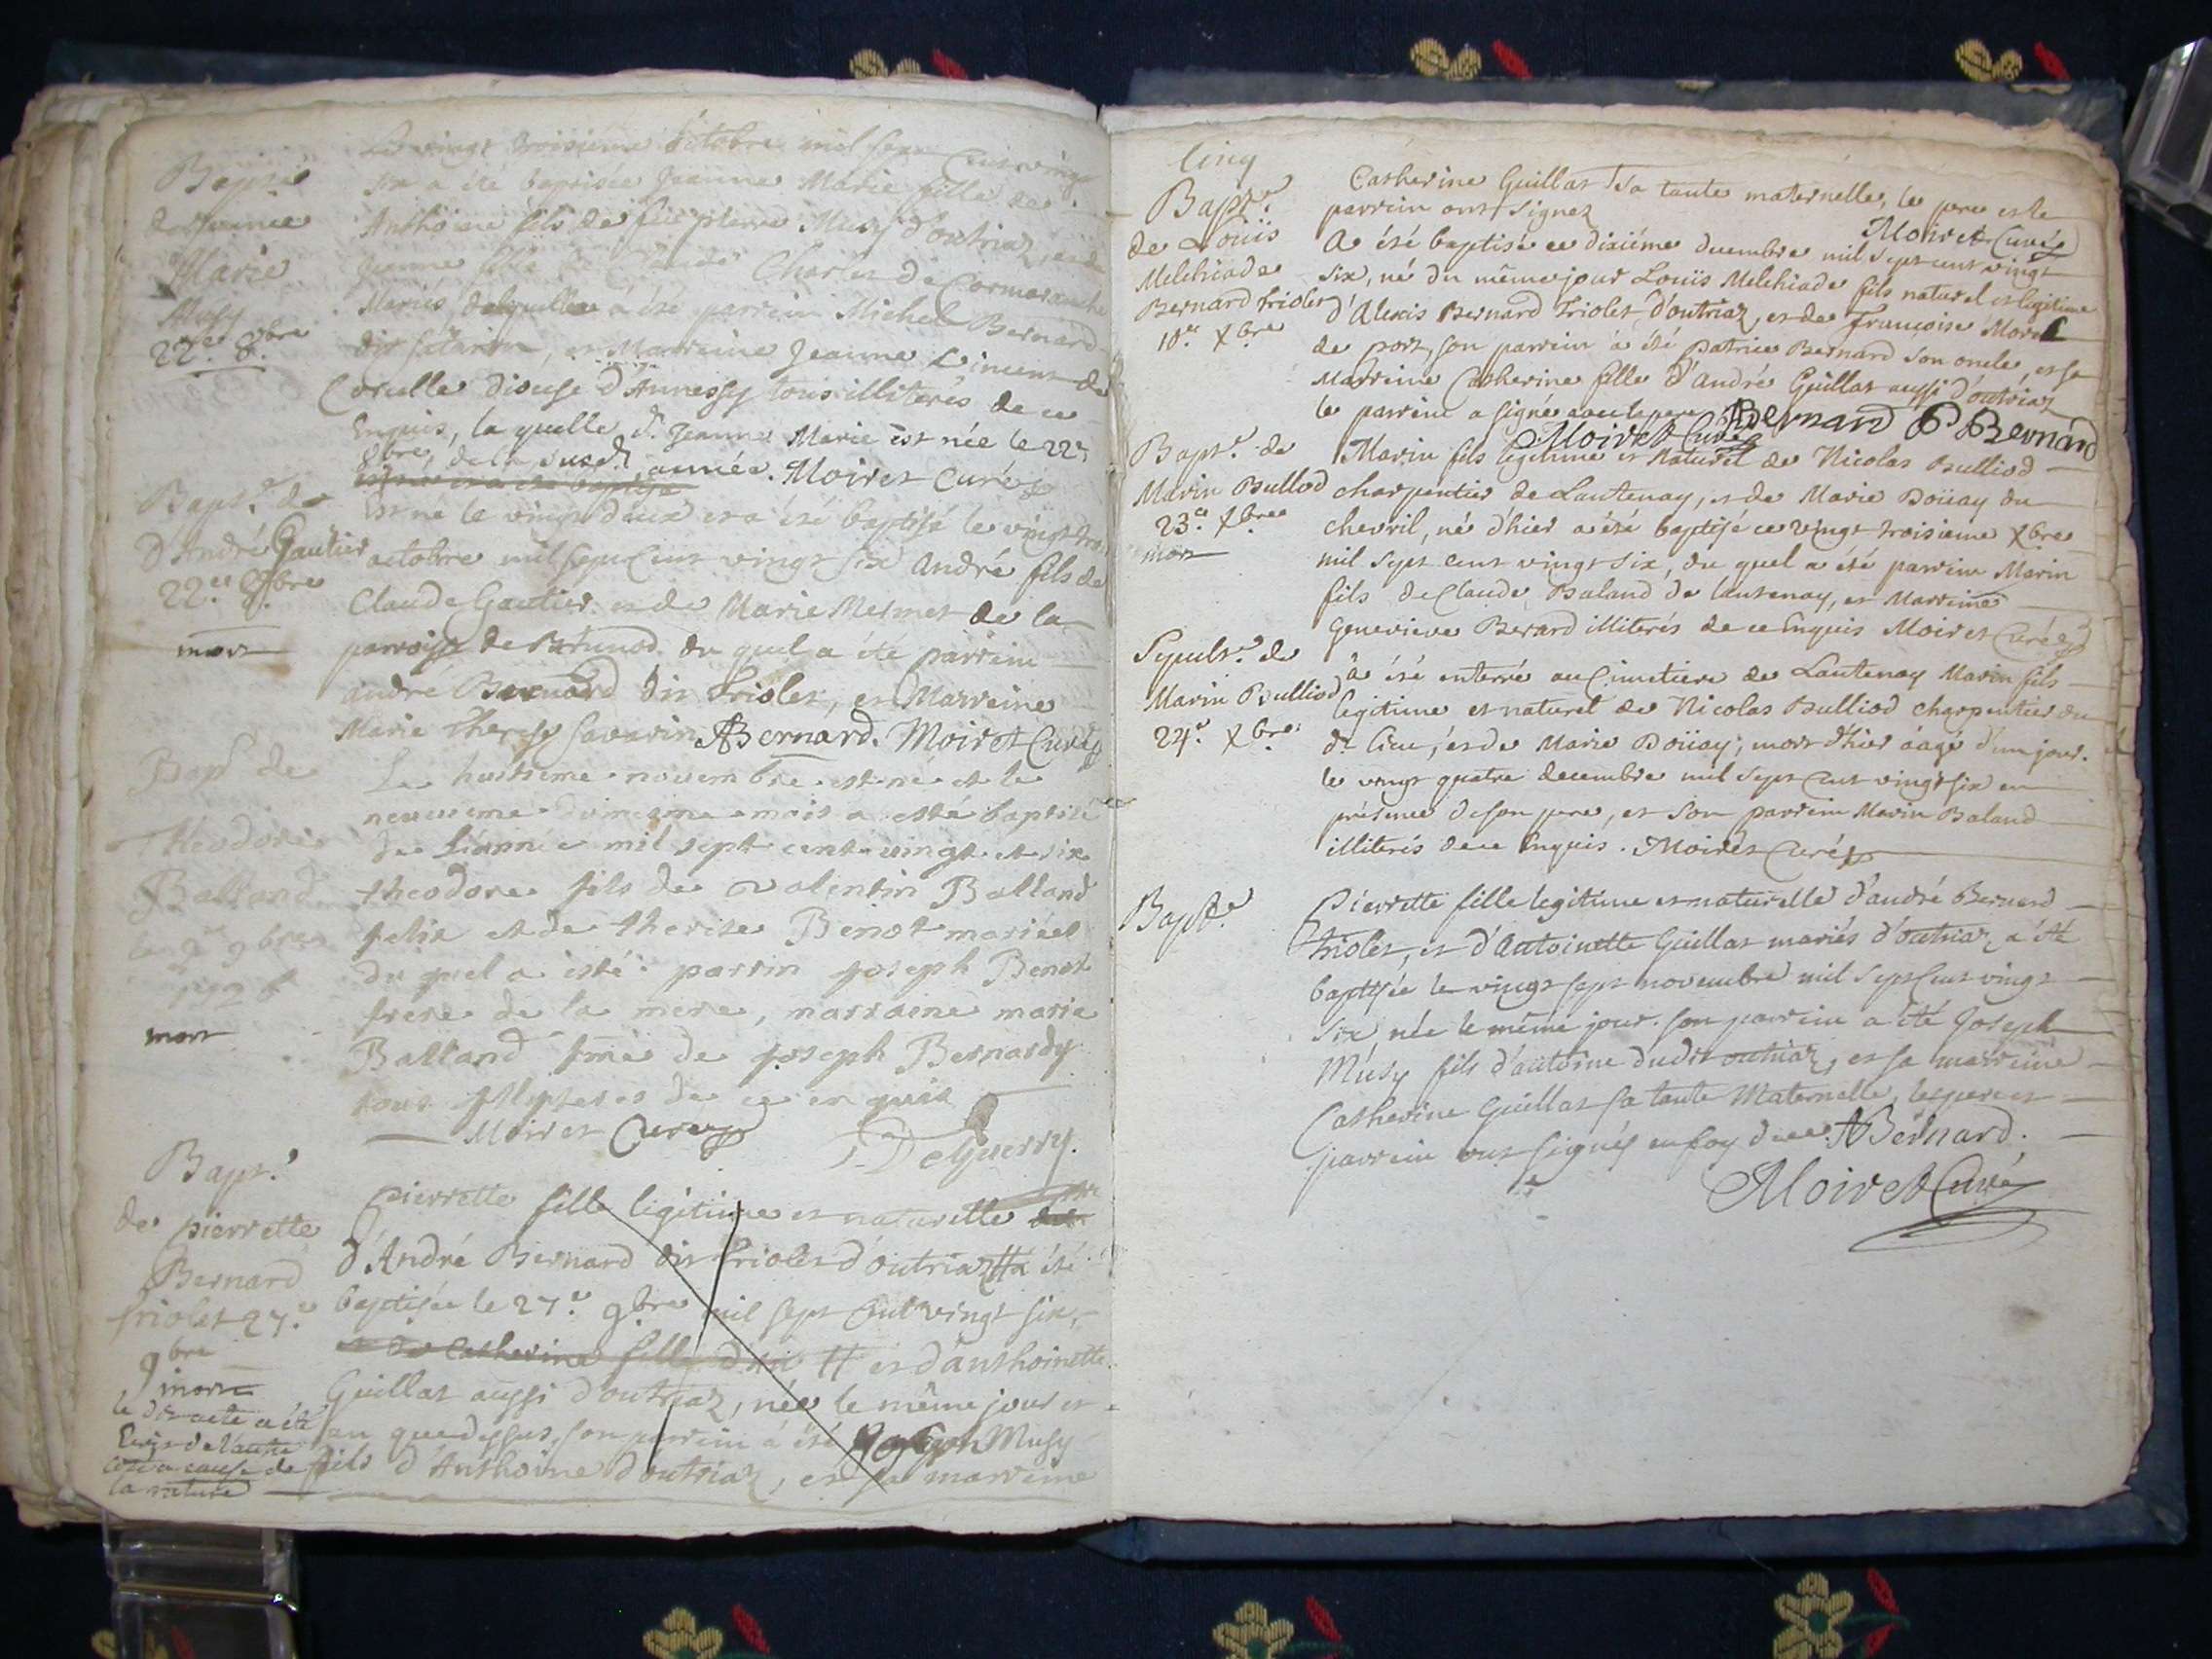 Bapt.e
de Jeanne
Marie
Musy
22.e 8.bre
Le vingt troisième octobre mil sept cent vingt
six a été baptisée Jeanne Marie fille de
Anthoine fils de feu pierre Musy d'outriaz, et de
Jeanne fille de Claude Charles de Cormaranche
Mariés, de laquelle a été parrein Michel Bernard
dit savarin, et Marreine Jeanne
d'Annessy tous illiterés de ce
Enquis, la quelle d. Jeanne Marie est née le 22.e
8bre de la susd. année. Moiret Curé
Bapt.e de
D'André Gautier
22.e 8.bre
mort
Est né le vingt deux et a été baptisé le vingt trois
octobre mil sept cent vingt six André fils de
Claude Gautier et de Marie Mermet de la
parroisse de Brénod du quel a été parrein
andré Bernard dit triolet, et Marreine
Marie Therese Savarin ABernard. Moiret Curé
Bapt de
Théodore
Balland
le 9e 9bre
1726
mort
Le huitieme novembre est né et le
neuvieme du mesme mois a esté baptisé
de l'année mil sept cent vingt et six
theodore fils de valentin Balland
felix et de therese Benot mariés
du quel a esté parrin joseph Benot
frere de la mere, marraine marie
Balland fme de joseph Bernardy
tous illyteres de ce en quis
Moiret Curé DeGuerry.
Bapt.e
de pierrette
Bernard
triolet 27.e
9bre
morte
le dit acte a été
Ecrit de l'autre
coté a cause de
la rature
Pierrette fille legitime et naturelle
d'André Bernard dit triolet d'outriaz # a été
baptisée le 27.e 9bre mil sept cent vingt six,
et de Catherine fille # et d'anthoinette
Guillat aussi d'outriaz, née le même jour et
an que dessus, son parrein a été Joseph Musy
fils d'Anthoine d'outriaz, et sa marreine
Cinq
Catherine Guillat sa tante maternelle, le pere et le
parrein ont signez Moiret Curé
Bapt.e
de Louis
Melchiade
Bernard triolet
10.e Xbre
A été baptisé ce dixiéme decembre mil sept cent vingt
six, né du même jour Louis Melchiade fils naturel et legitime
d'Alexis Bernard triolet, d'outriaz, et de Francoise Morel
de port, son parrein a été patrice Bernard son oncle, et sa
Marreine Catherine fille d'André Guillat aussi d'outriaz
le parrein a signé avec le pere ABernard P Bernard
Moiret Curé
Bapt.e de
Marin Bulliod
23.e Xbre
mort
Marin fils legitime et naturel de Nicolas Bulliod
charpentier de Lantenay, et de Marie Doüay du
chevril, né d'hier a été baptisé ce vingt troisieme Xbre
mil sept cent vingt six, du quel a été parrein Marin
fils de Claude Baland de lantenay, et Marreine
Genevieve Berard illiterés de ce Enquis Moiret Curé
Sepult.e de
Marin Bulliod
24.e Xbre
A été enterré au Cimetiere de Lantenay Marin fils
legitime et naturel de Nicolas Bulliod charpentier du
dt lieu, et de Marie Doüay, mort d'hier âagé d'un jour.
le vingt quatre decembre mil sept cent vingt six en
présence de son pere, et son parrein Marin Baland
illiterés de ce Enquis. Moiret Curé
Bapt.e
Pierrette fille legitime et naturelle d'andré Bernard
triolet, et d'Antoinette Guillat mariés d'outriaz a été
baptisée le vingt sept novembre mil sept cent vingt
six, née le même jour. son parrein a été Joseph
Musy fils d'antoine dudit outriaz, et sa marreine
Catherine Guillat sa tante Maternelle, les pere et
parrein ont signés en foy de ce. ABernard.
Moiret Curé